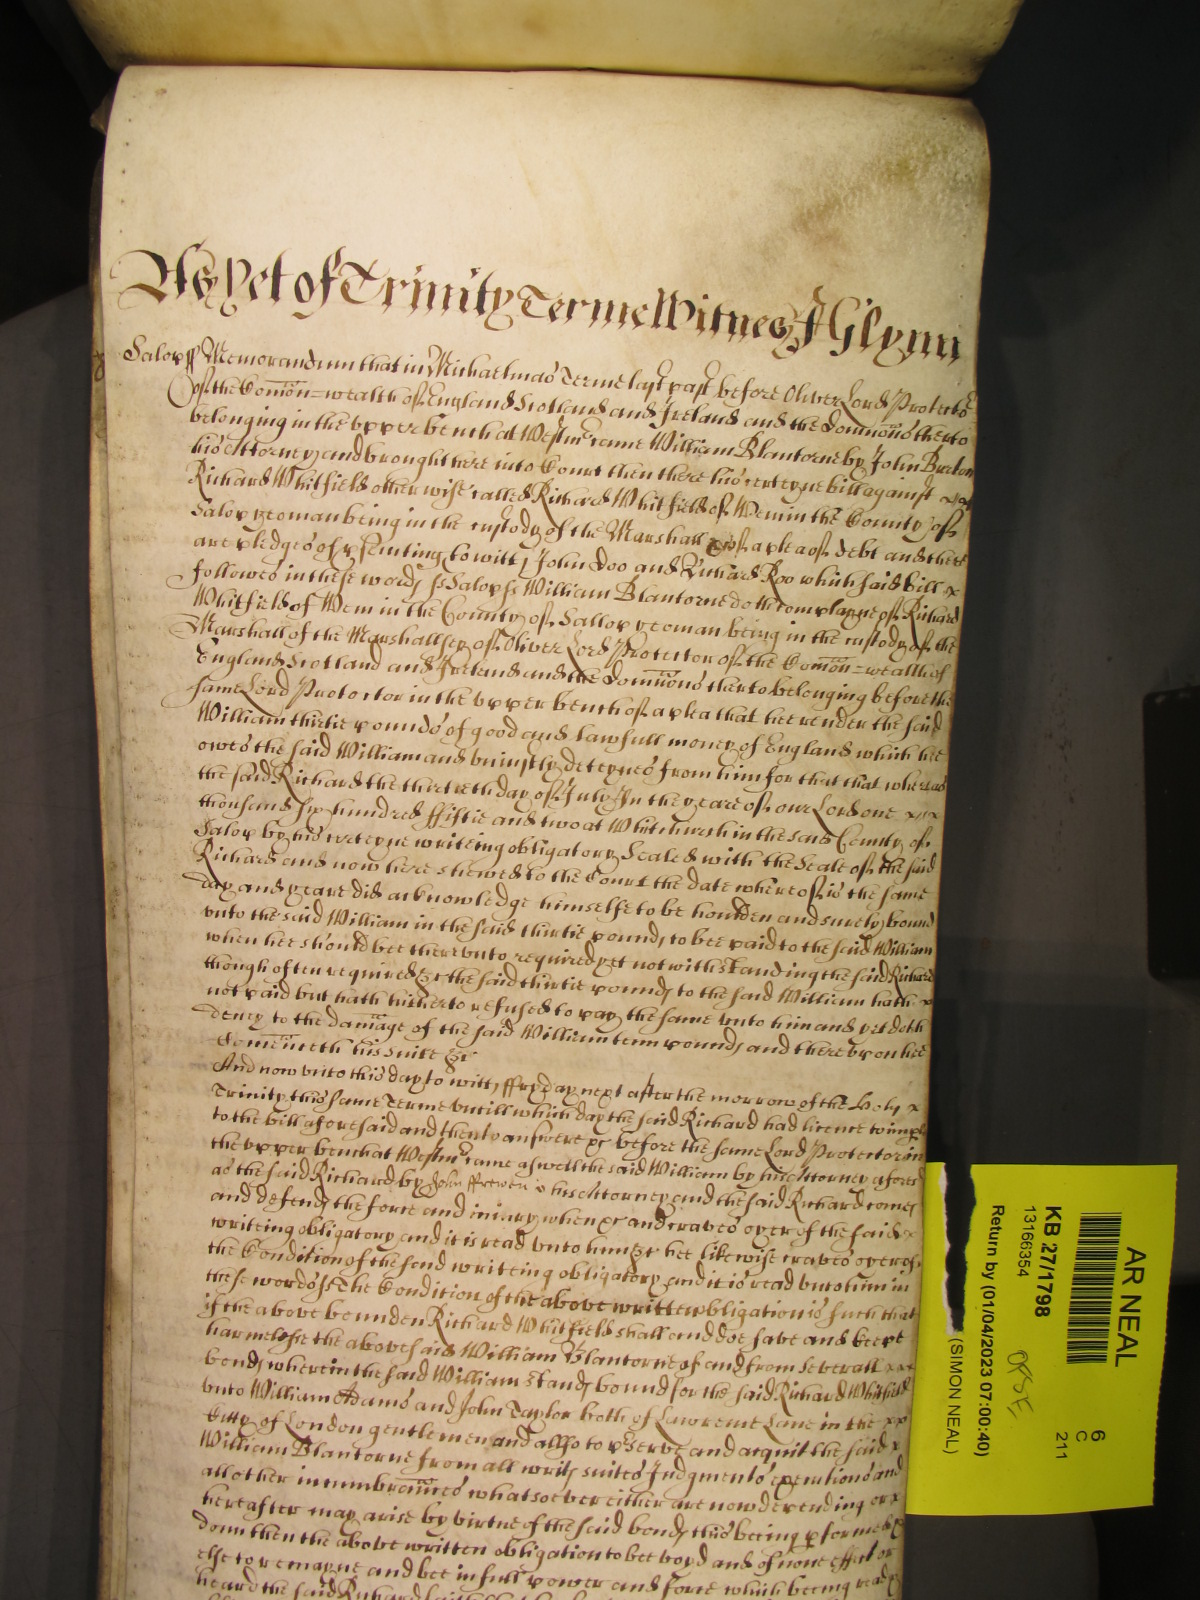 As Yet of Trinity Terme Witnes J Glynn
Salop ss Memorandum that in Michaelmas Terme last past before Oliver Lord Protector
of the Com̅on=wealth of England Scotland and Ireland and the Dominions therto
belonging in the upper bench at Westmr came William Blantorne by John Burton
his Attorney and brought here into Court then there his certeyne bill against
Richard Whitfield otherwise called Richard Whitfield of Wem in the County of
Salop yeoman being in the custody of the Marshall &c of a plea of debt and there
are pledges of prosecuting, to witt, John Doo and Richard Roo which said bill
followes in these words ss Salop ss William Blantorne doth complayne of Richard
Whitfield of Wem in the County of Sallop yeoman being in the custody of the
Marshall of the Marshallsey of Oliver Lord Protector of the Com̅on=wealth of
England Scotland and Ireland and the Dominions therto belonging before the
same Lord Protector in the upper bench of a plea that hee render the said
William thirtie pounds of good and lawfull money of England which hee
owes the said William and uniustly deteynes from him for that that whereas
the said Richard the thirteth day of July In the yeare of our Lord one
thousand six hundred ffiftie and two at Whitchurch in the said County of
Salop by his certeyne writeing obligatory Sealed with the Seale of the said
Richard and now here shewed to the Court the date whereof is the same
day and yeare did acknowledge himselfe to be houlden and surely bound
unto the said William in the said thirtie pounds to bee paid to the said William
when hee should bee thereunto required yet notwithstanding the said Richard
though often required &c the said thirtie pounds to the said William hath
not paid but hath hitherto refused to pay the same unto him and yet doth
deny to the damage of the said William tenn pounds and thereupon hee
com̅enceth his suite &c
And now unto this day to witt, ffryday next after the morrow of the Holy
Trinity this same Terme untill which day the said Richard had licence to imple
to the bill aforesaid and then to answere &c before the same Lord Protector in
the upper bench at Westmr came aswell the said William by his Attorney afores
as the said Richard by John ffrewen his Attorney and the said Richard comes
and defends the force and iniury when &c and craves oyer of the said
writeing obligatory and it is read unto him &c hee likewise craves oyer of
the Condition of the said writeing obligatory and it is read unto him in
these words ss The Condition of the above written obligation is such that
if the above bounden Richard Whitfield shall and doe save and keepe
harmelesse the abovesaid William Blantorne of and from severall
bonds wherein the said William stands bound for the said Richard Whitfield
unto William Adams and John Taylor both of Lawrence Lane in the
Citty of London gentlemen and allso to p'serve and acquit the said
William Blantorne from all writs suites Judgments executions and
all other incumbrances whatsoever either are now depending or
hereafter may arise by virtue of the said bonds this being performed
don then the above written obligation to bee voyd and of none effect or
else to remayne and bee in full power and force which being read
heard the said Richard
AR NEAL
6
C
211
KB 27/1798
13166354
Return by (01/04/2023 07:00:40)
(SIMON NEAL)